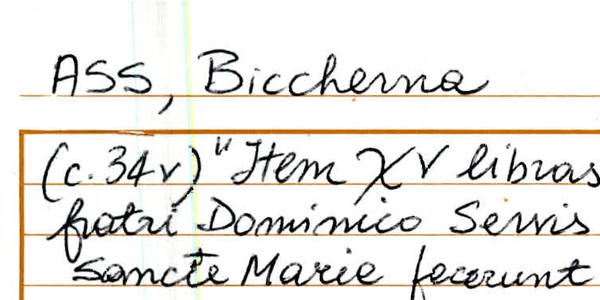 ASS, Biccherna
(c. 34v) "Item XV libras
fratri Dominico Servis
Sancte Marie fecerunt